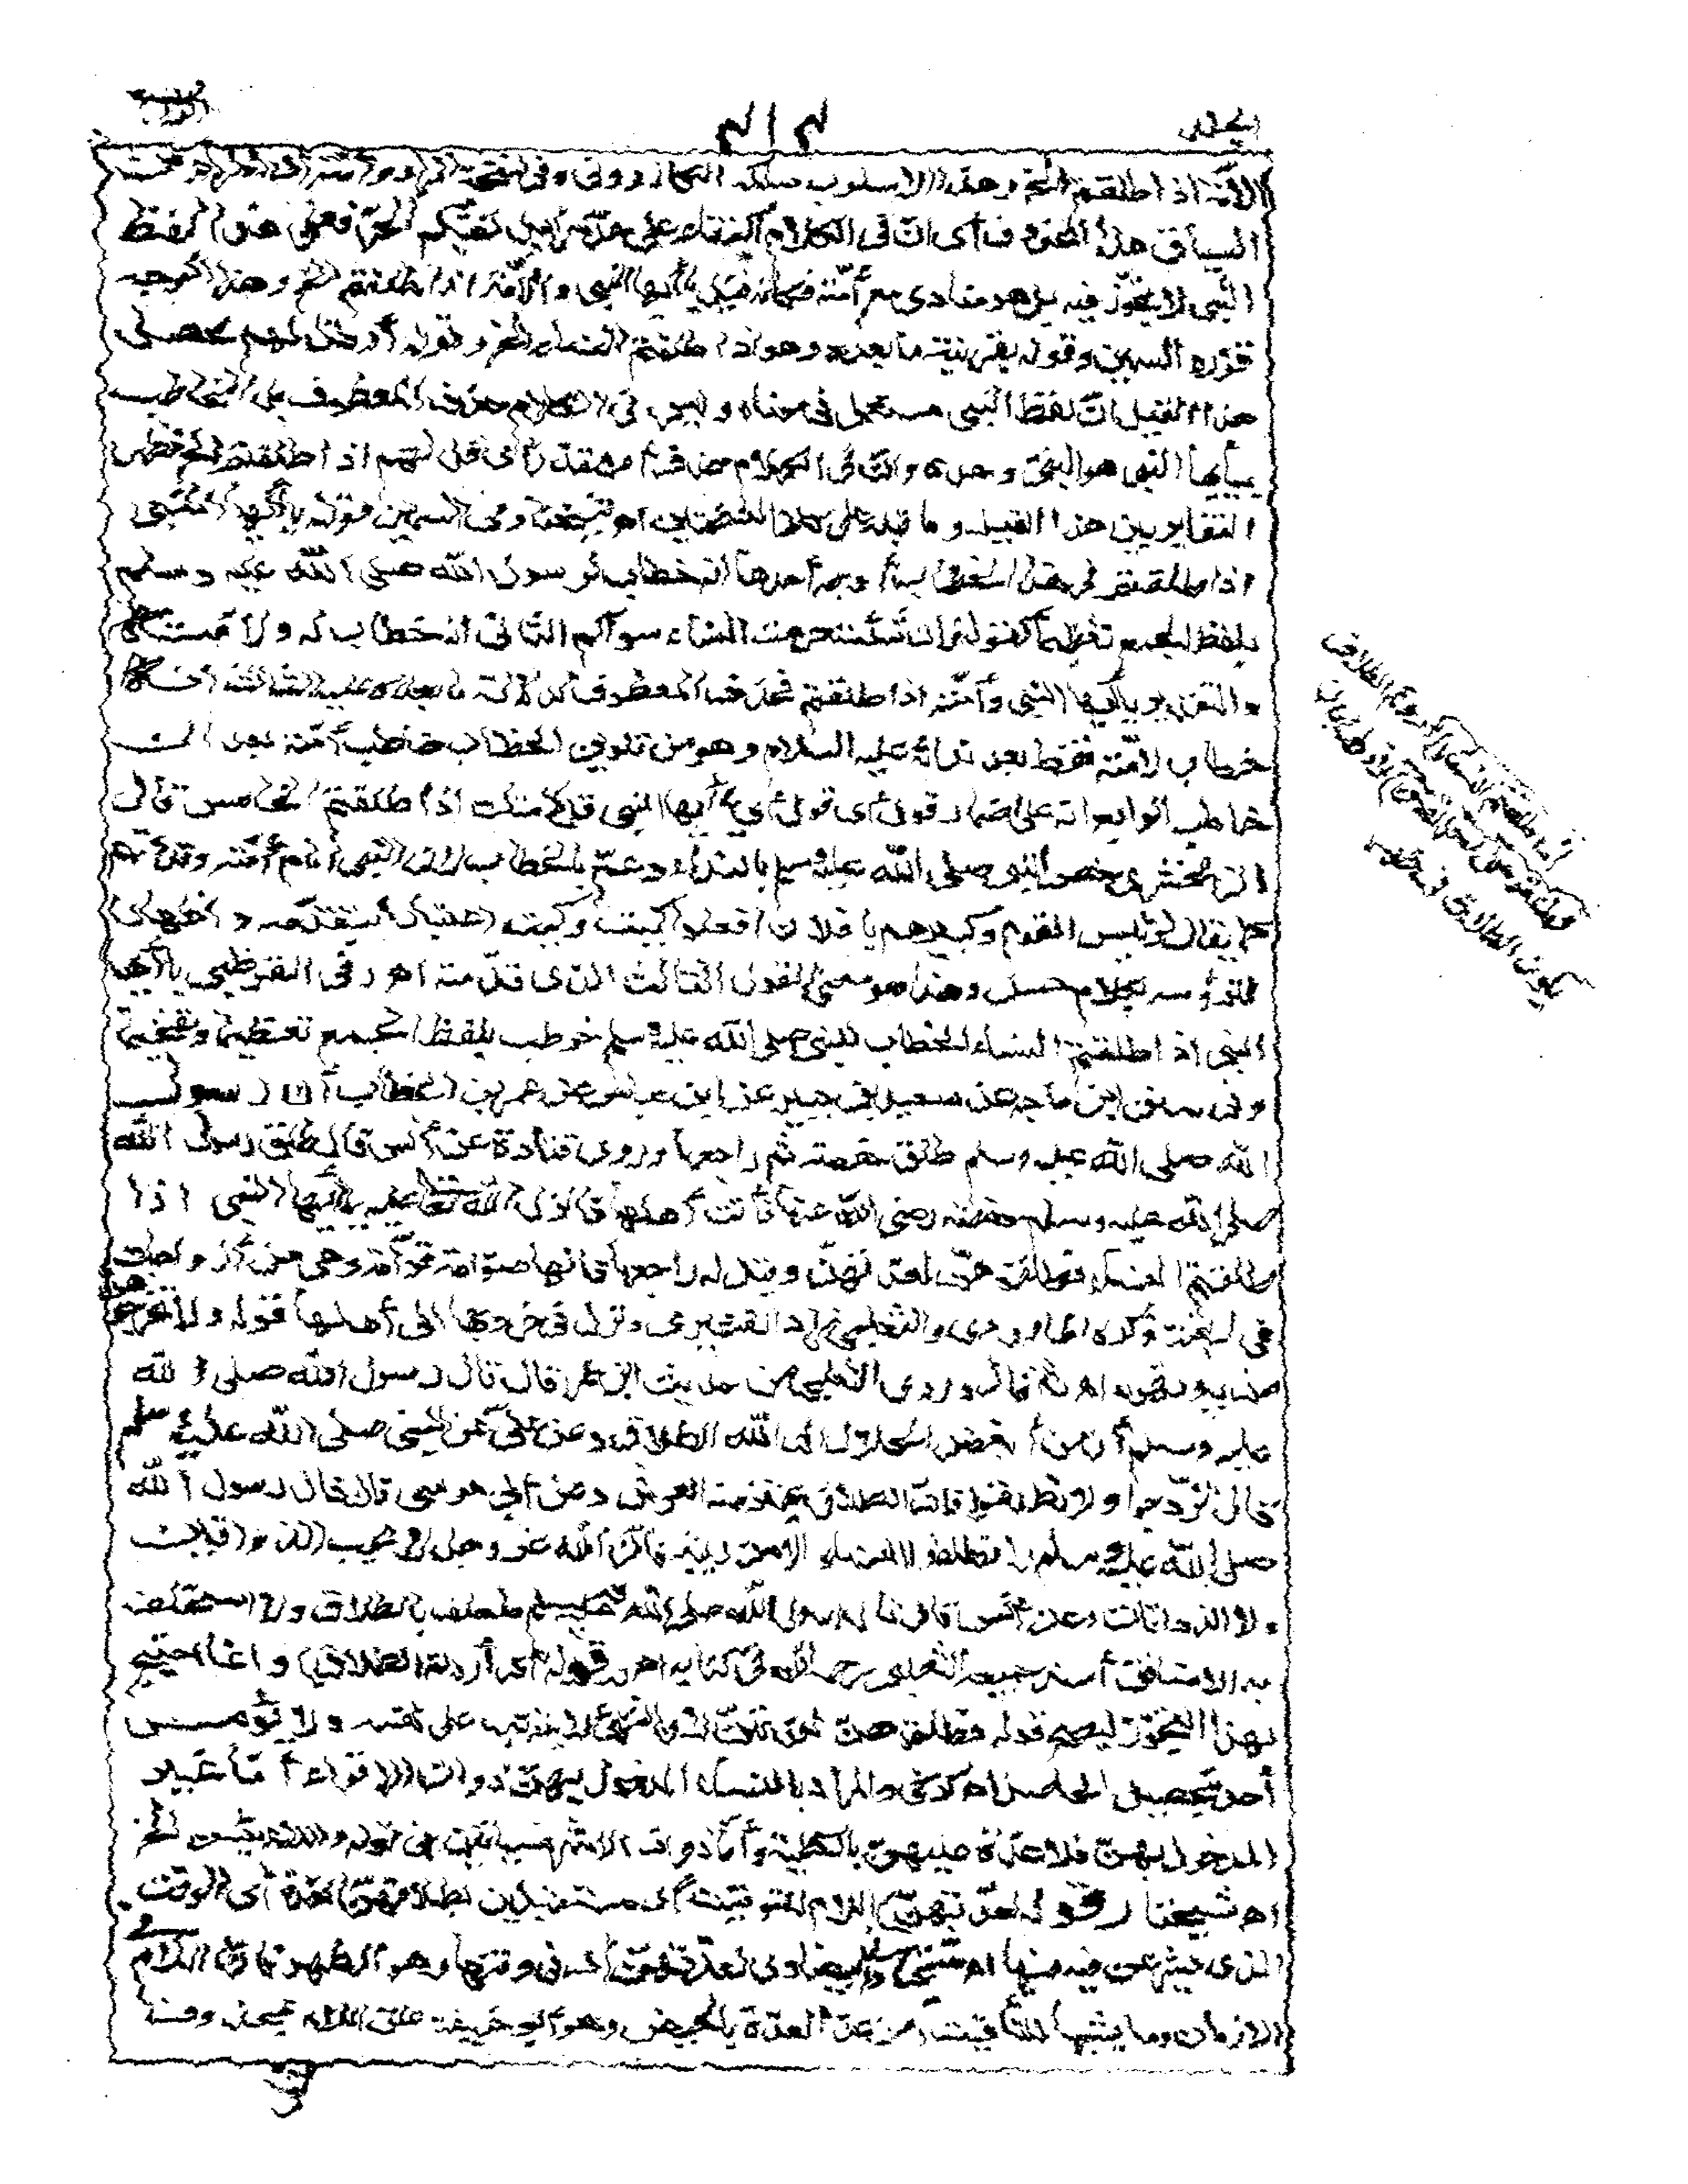 الجلد
٣١٣
الأمة اذا طلقتم الخ وهذا الاسلوب سلكه الكازروني وفي نسخة
السياق هذا المحذوف أي ان في الكلام اكتفاء على حد سرابيل تقيكم الحر فعلى هذا لفظ
النبي لا تجوّز فيه بل هو منادى مع أمته فكأنه قيل يا أيها النبي والأمة اذا طلقتم الخ وهذا الوجه
قرره السمين وقوله بقرينة ما بعده وهو اذا طلقتم النساء الخ وقوله أو قل لهم محصل
هذا القيل ان لفظ النبي مستعمل في معناه وليس في الكلام حذف المعطوف بل المخاطب
بيأيها النبي هو النبي وحده وان في الكلام حذف أمر تقديره أي قل لهم اذا طلقتم الخ فظهر
التغاير بين هذا القيل وما قبله على كلا النسختين اه شيخنا وفي السمين قوله يا أيها النبي
اذا طلقتم في هذا الخطاب أوجه أحدها انه خطاب لرسول الله صلى الله عليه وسلم
بلفظ الجمع تعظيما كقوله فان شئت حرمت النساء سواكم الثاني انه خطاب له ولأمته
والتقدير يا أيها النبي وأمته اذا طلقتم فحذف المعطوف لدلالة ما بعده عليه الثالث انه
خطاب لأمته فقط بعد ندائه عليه السلام وهو من تلوين الخطاب خاطب أمته بعد أن
خاطبه الرابع انه على اضمار قول أي يا أيها النبي قل لأمتك اذا طلقتم الخامس قال
الزمخشري خص النبي صلى الله عليه وسلم بالنداء وعمّ بالخطاب لان النبي امام أمته وقدوتهم
كما يقال لرئيس القوم وكبيرهم يا فلان افعلوا كيت وكيت اعتبارا بتقدمه واظهارا
لترؤسه بكلام حسن وهذا هو معنى القول الثالث الذي قدمته اه وفي القرطبي يا أيها
النبي اذا طلقتم النساء الخطاب للنبي صلى الله عليه وسلم خوطب بلفظ الجمع تعظيما وتفخيما
وفي سنن ابن ماجه عن سعيد بن جبير عن ابن عباس عن عمر بن الخطاب أن رسول
الله صلى الله عليه وسلم طلق حفصة ثم راجعها وروى قتادة عن أنس قال طلق رسول الله
صلى الله عليه وسلم حفصة رضي الله عنها فأتت أهلها فأنزل الله تعالى عليه يا أيها النبي اذا
طلقتم النساء فطلقوهن لعدتهن وقيل له راجعها فانها صوّامة قوّامة وهي من أزواجك
في الجنة ذكره الماوردي والثعلبي زاد القشيري ونزل في خروجها الى أهلها قوله ولا تخرجوهن
من بيوتهن اه ثم قال وروى الثعلبي من حديث ابن عمر قال قال رسول الله صلى الله
عليه وسلم ان من أبغض الحلال الى الله الطلاق وعن علي عن النبي صلى الله عليه وسلم
قال تزوّجوا ولا تطلقوا فان الطلاق يهتز منه العرش وعن أبي موسى قال قال رسول الله
صلى الله عليه وسلم لا تطلقوا النساء الا من ريبة فان الله عز وجل لا يحب الذواقين
ولا الذواقات وعن أنس قال قال رسول الله صلى الله عليه وسلم ما حلف بالطلاق ولا استحلف
به الا منافق أسند جميعه الثعلبي رحمه الله في كتابه اه (قوله أي أردتم الطلاق) وانما احتيج
لهذا التجوّز ليصح قوله فطلقوهن لعدتهن لان الشيء لا يترتب على نفسه ولا يؤمر
أحد بتحصيل الحاصل اه كرخي والمراد بالنساء المدخول بهن ذوات الاقراء أما غير
المدخول بهن فلا عدة عليهن بالكلية وأما ذوات الاشهر فسيأتين في قوله واللائي يئسن الخ
اه شيخنا (قوله لعدتهن) اللام للتوقيت أي مستقبلين بطلاقهن العدة أي الوقت
الذي يشرعن فيه فيها اه شيخنا وفي البيضاوي لعدتهن أي في وقتها وهو الطهر فان اللام
الازمان وما يشبهها للتأقيت ومن عدّ العدة بالحيض وهو أبو حنيفة علق اللام بمحذوف